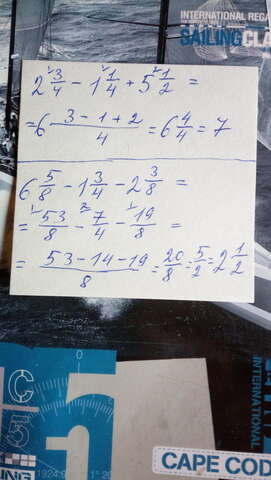 INTERNATIONAL REGA
SAILING CLA
2 3/4 − 1 1/4 + 5 1/2 =
= 6 (3 − 1 + 2)/4 = 6 4/4 = 7
6 5/8 − 1 3/4 − 2 3/8 =
= 53/8 − 7/4 − 19/8 =
= (53 − 14 − 19)/8 = 20/8 = 5/2 = 2 1/2
C
5
INTERNATIONAL
CAPE COD